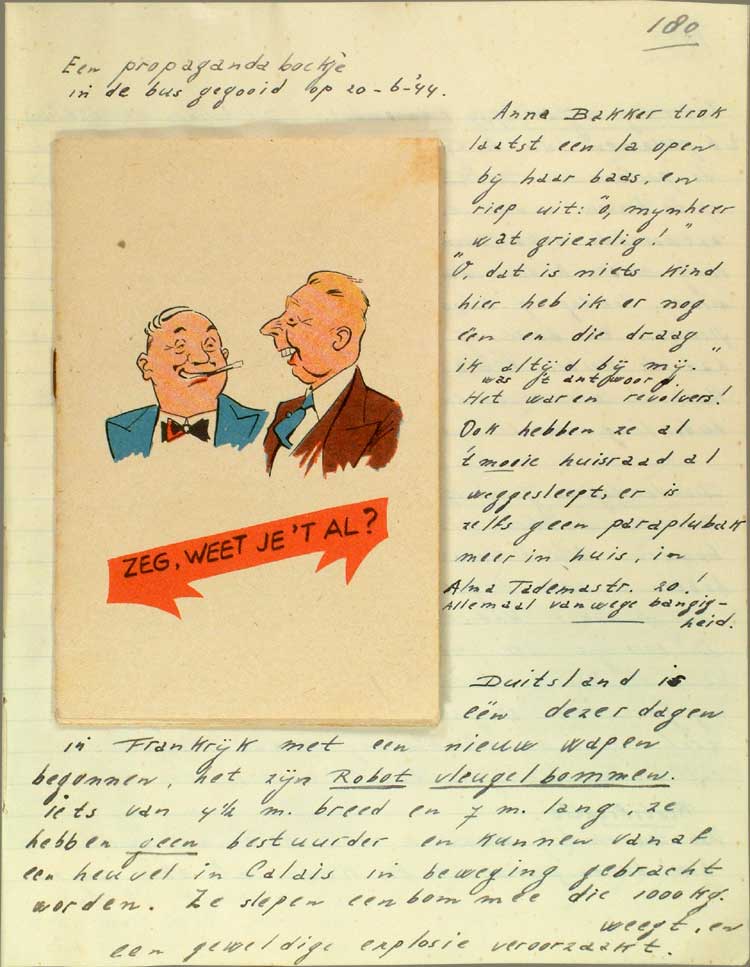 180
Een propaganda boekje
in de bus gegooid op 20-6-'44.
ZEG, WEET JE 'T AL?
Anna Bakker trok
laatst een la open
bij haar baas, en
riep uit: "O, mynheer
wat griezelig!"
"O, dat is niets kind
hier heb ik er nog
één en die draag
ik altijd bij mij."
was 't antwoord.
Het waren revolvers!
Ook hebben ze al
't mooie huisraad al
weggesleept, er is
zelfs geen paraplubak
meer in huis, in
Alma Tademastr. 20!
Allemaal vanwege bangig-
heid.
Duitsland is
één dezer dagen
in Frankrijk met een nieuw wapen
begonnen, het zijn Robot vleugelbommen.
iets van 4½ m. breed en 7 m. lang, ze
hebben geen bestuurder en kunnen vanaf
een heuvel in Calais in beweging gebracht
worden. Ze slepen een bom mee die 1000 kg.
weegt, en
een geweldige explosie veroorzaakt.